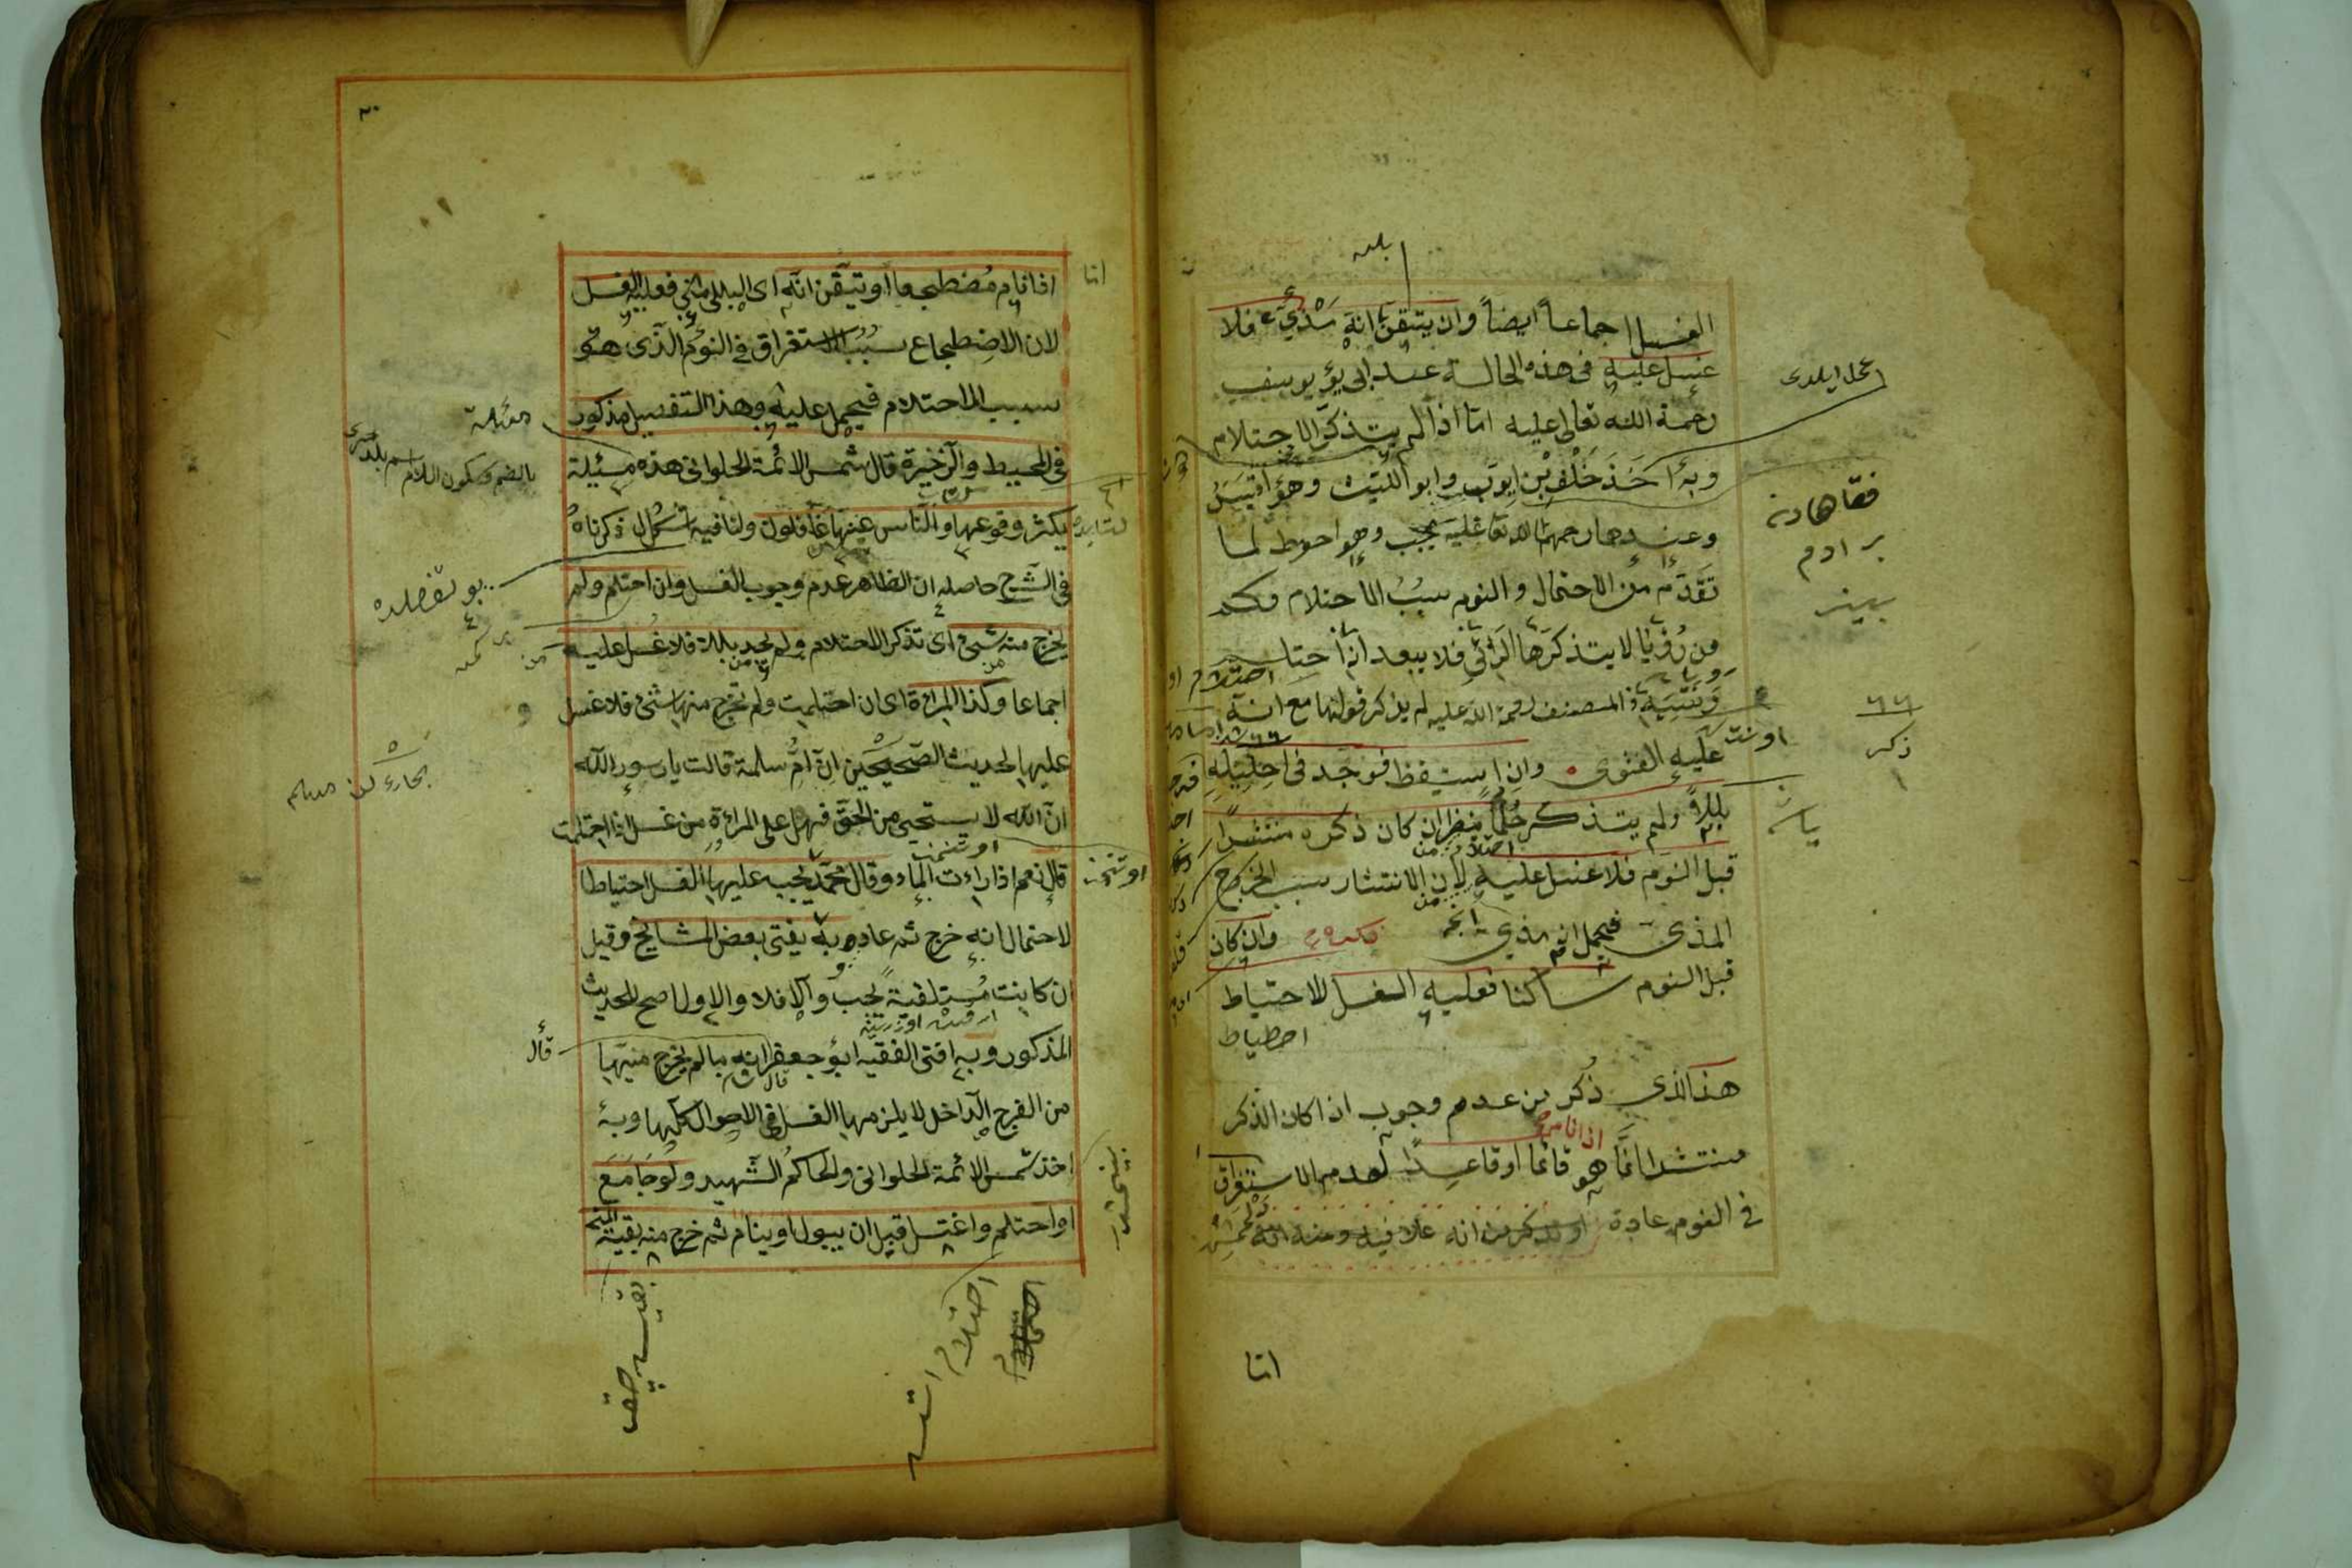 الغسل اجماعاً ايضاً وان يتيقن انه مذي فلا
غسل عليه فى هذه الحالة عند ابى يوسف
رحمة الله تعالى عليه امّا اذا لم يتذكّر الاحتلام
وبه اخذ خلف بن ايوب وابو الليث وهو اقيس
وعندهما رحمهما الله تعا عليه يجب وهو احوط لما
تقدّم من الاحتمال والنوم سبب الاحتلام فكم
من رُؤيا لا يتذكرها الرائى فلا يبعد انه احتلم
ونسيه المصنف رحمة الله عليه لم يذكر قولهما مع انه
عليه الفتوى وان استيقظ فوجد فى احليله
بللاً ولم يتذكر حُلماً ينظر ان كان ذكره منتشراً
قبل النوم فلا غسل عليه لان الانتشار سبب لخروج
المذى فيحمل انه مذي وان كان
قبل النوم ساكنا فعليه الغسل للاحتياط
احطياط
هذا الذى ذُكر من عدم وجوب اذا كان الذكر
منتشرا انما هو قائما او قاعداً لعدم الاستغراق
اذا نام
فى النوم عادة
امّا
عمل ايلدى
بر ادم
ذكر
اذا نام مُضطجعا او تيقّن انّه اى البلل منّي فعليه الغسل
لان الاضطجاع سبب الاستغراق فى النوم الّذى هو
سبب الاحتلام فيحمل عليه وهذا التفصيل مذكور
فى المحيط والذخيرة قال شمس الائمة الحلوانى هذه مسئلة
يكثر وقوعها والنّاس عنها غافلون ولنا فيه اشكال ذكرناه
فى الشرح حاصله ان الظاهر عدم وجوب الغسل وان احتلم ولم
يخرج منه شيئ اى تذكر الاحتلام ولم يجد بللا فلا غسل عليه
اجماعا وكذا المرأة اى ان احتلمت ولم يخرج منها شئ فلا غسل
عليها لحديث الصّحيحين انّ امّ سلمة قالت يا رسول الله
انّ الله لا يستحيي من الحقّ فهل على المرأة من غسل اذا احتلمت
قال نعم اذا رأت الماء وقال محمّد يجب عليها الغسل احتياطا
لاحتمال انه خرج ثم عاد وبه يفتى بعض المشايخ وقيل
ان كانت مُستلقية يجب والا فلا والاول اصح للحديث
المذكور وبه افتى الفقيه ابو جعفر انه ما لم يخرج منيها
من الفرج الدّاخل لا يلزمها الغسل فى الاحوال كلّها وبه
اخذ شمس الائمة الحلوانى والحاكم الشهيد ولو جامع
او احتلم واغتسل قبل ان يبول او ينام ثم خرج منه بقية المنى
بالضم وسكون اللام
قال
احتلام